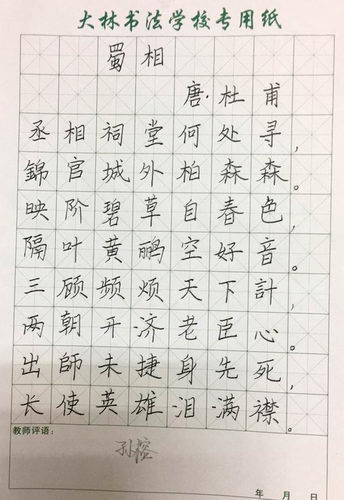 大林书法学校专用纸
蜀相
唐·杜甫
丞相祠堂何处寻，
錦官城外柏森森。
映阶碧草自春色，
隔叶黄鹂空好音。
三顾频烦天下計，
两朝开济老臣心。
出師未捷身先死，
长使英雄泪满襟。
教师评语：
孙榕
年 月 日